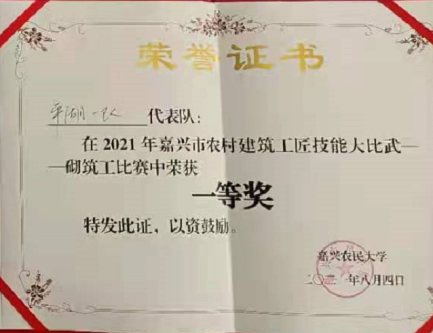 荣誉证书
平湖一队 代表队：
在2021年嘉兴市农村建筑工匠技能大比武—
—砌筑工比赛中荣获
一等奖
特发此证，以资鼓励。
嘉兴农民大学
二〇二一年八月四日